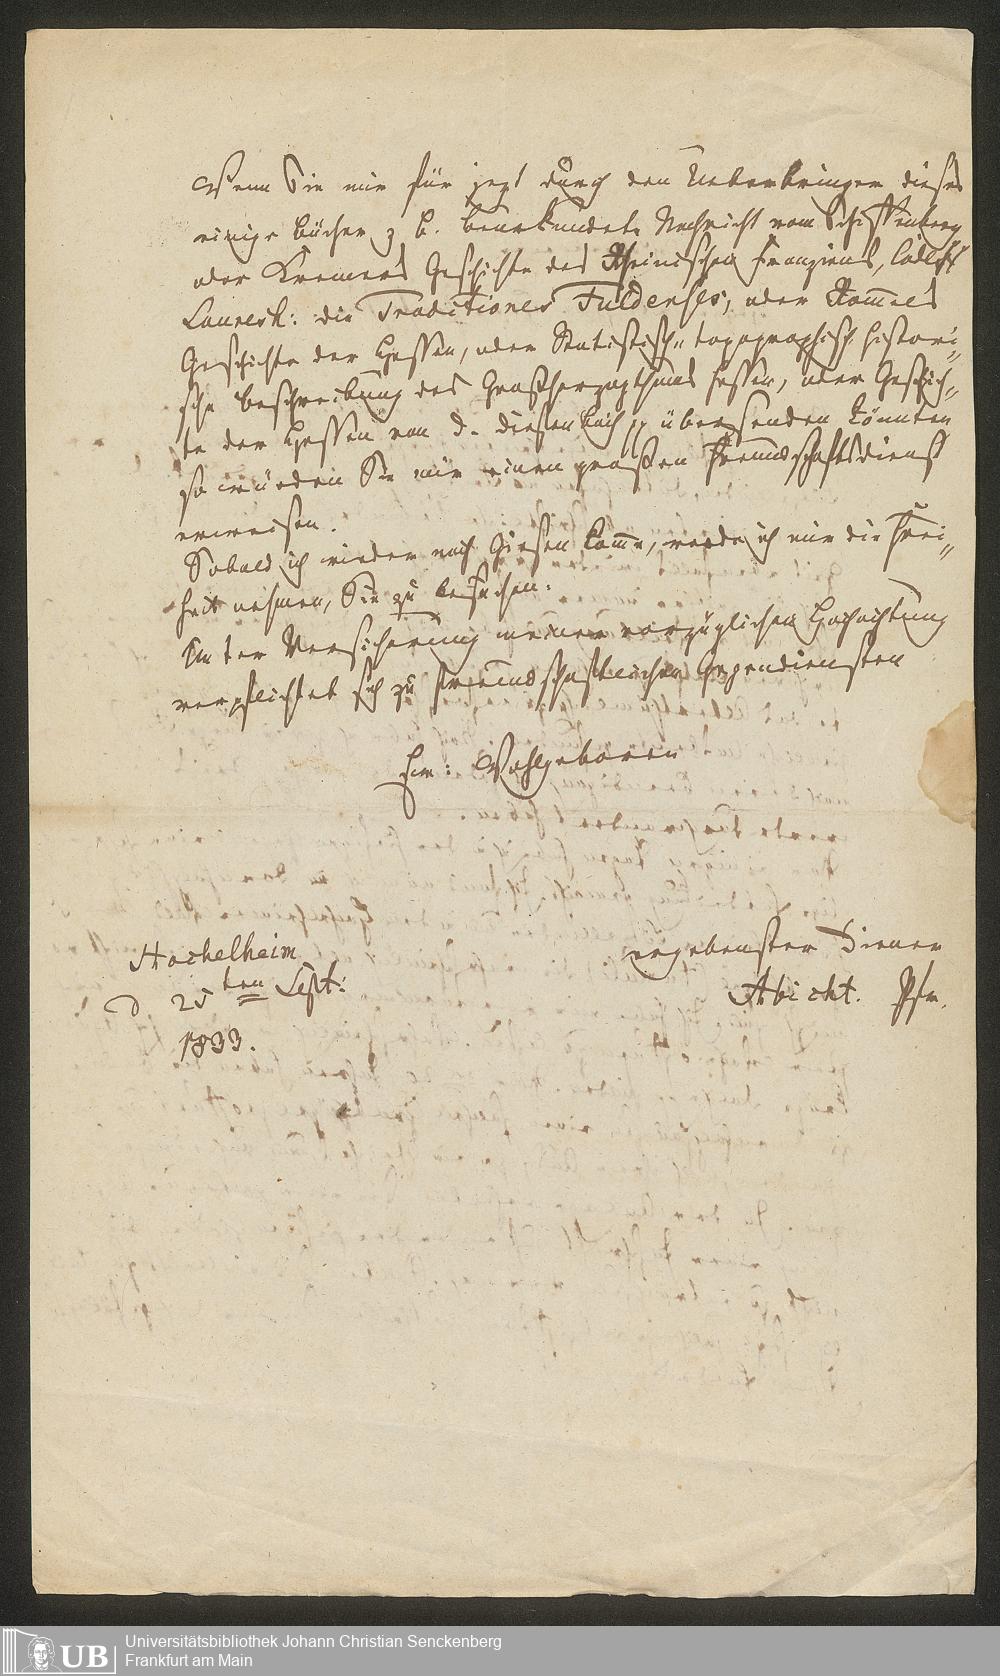 Wenn Sie mir für jezt durch den Ueberbringer dieses
einige Bücher z B. beurkundete Nachricht vom Schiffenberg
oder Kremers Geschichte des Rheinischen Franziens, Codex
Lauresh: die Traditiones Fuldenses, oder Rom̅els
Geschichte der Hessen, oder Statistisch„ topographisch histori„
sche Beschreibung des Großherzogthums Hessen, oder Geschich„
te der Hessen von d. Diefenbach pp übersenden könnten
so würden Sie mir einen großen Freundschaftsdienst
erweisen.
Sobald ich wieder nach Giesen kom̅e, werde ich mir die Frei„
heit nehmen, Sie zu besuchen.
Unter Versicherung meiner vorzüglichen Hochachtung
verpflichtet sich zu freundschaftlichen Gegendiensten
Ew: Wohlgeboren
ergebenster Diener
Abicht. Pfr.
Hochelheim
d. 25ten Sept:
1833.
UB Universitätsbibliothek Johann Christian Senckenberg
Frankfurt am Main